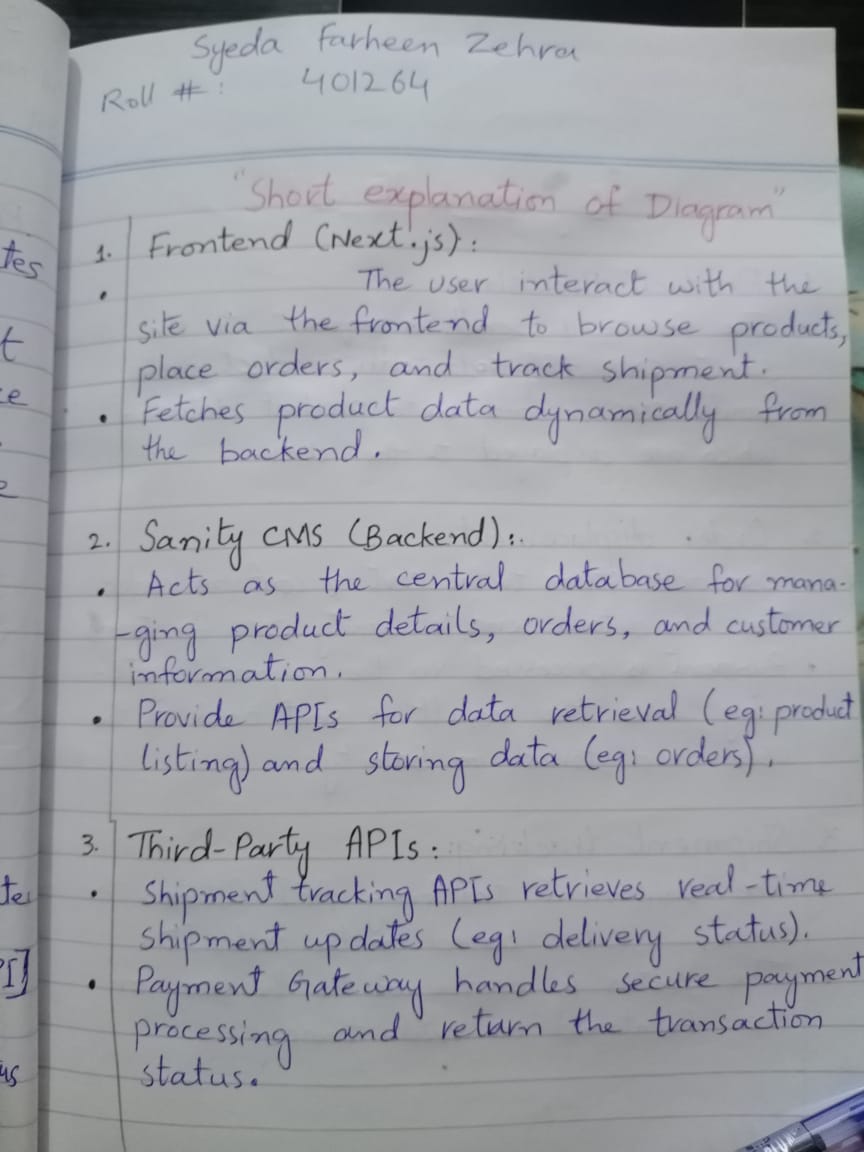 Syeda Farheen Zehra
Roll #: 401264
"Short explanation of Diagram"
1. Frontend (Next.js):
• The user interact with the
site via the frontend to browse products,
place orders, and track shipment.
• Fetches product data dynamically from
the backend.
2. Sanity CMS (Backend):.
• Acts as the central database for mana-
-ging product details, orders, and customer
information.
• Provide APIs for data retrieval (eg: product
listing) and storing data (eg: orders).
3. Third-Party APIs:
• Shipment tracking APIs retrieves real-time
shipment updates (eg: delivery status).
• Payment Gateway handles secure payment
processing and return the transaction
status.